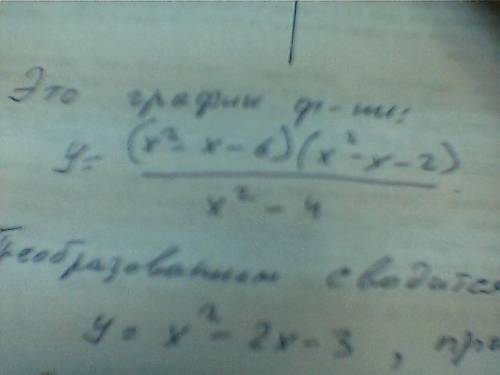 Это график ф-ции:
y = (x² - x - 6)(x² - x - 2)
x² - 4
Преобразованием сводится
y = x² - 2x - 3, при